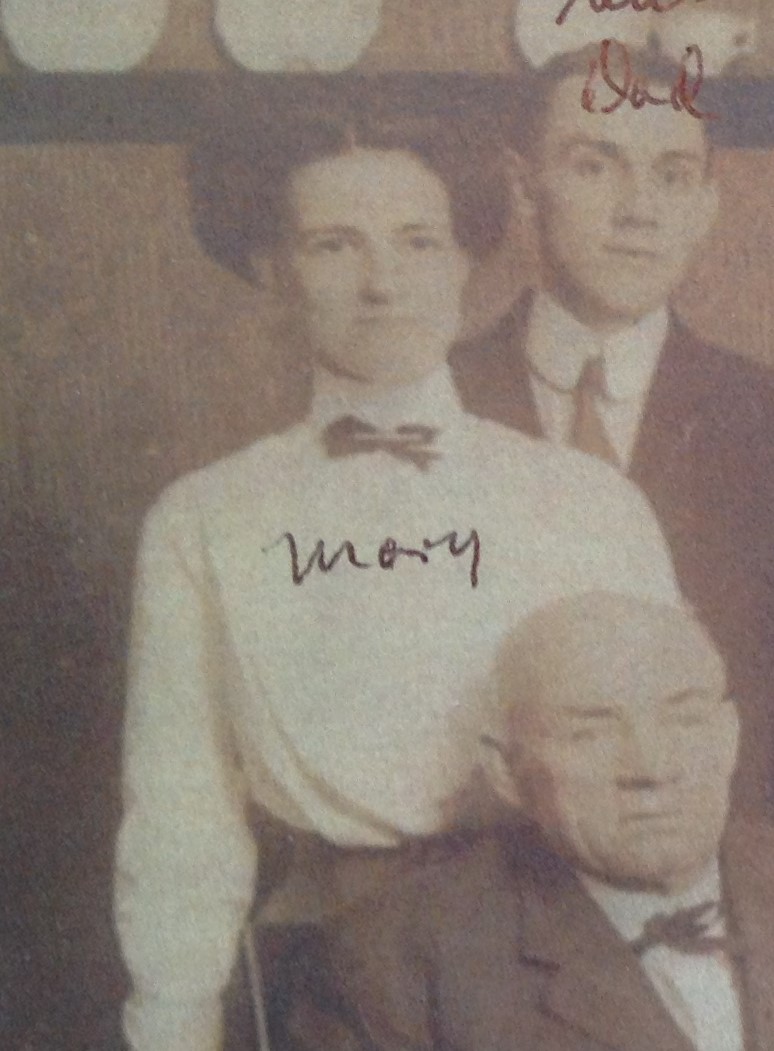 Dad
Mary